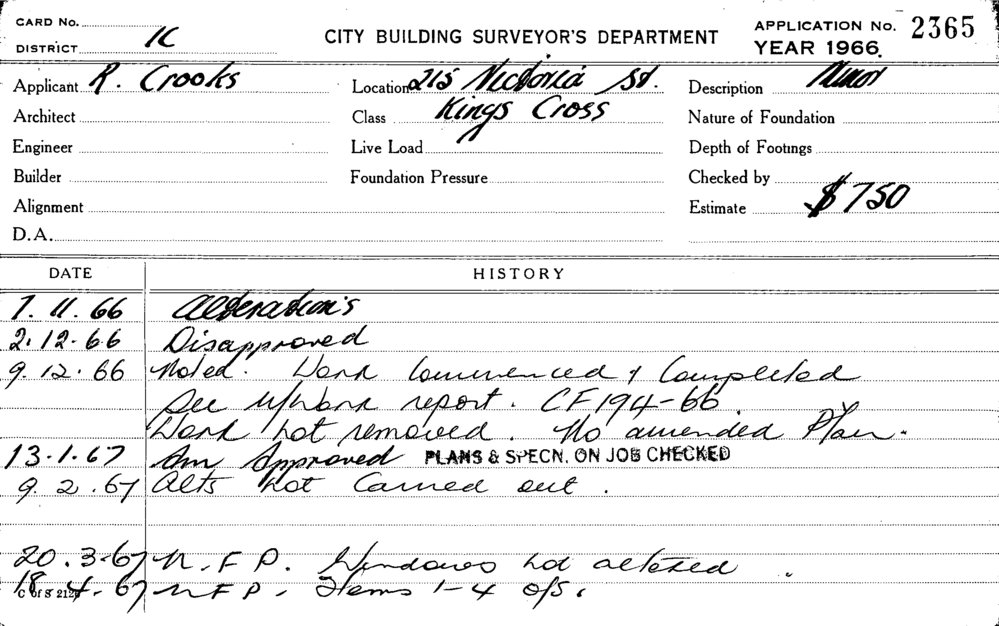 CARD No.
DISTRICT 1C
CITY BUILDING SURVEYOR'S DEPARTMENT
APPLICATION No. 2365
YEAR 1966.
Applicant R. Crooks
Location 215 Victoria St.
Description Minor
Architect
Class Kings Cross
Nature of Foundation
Engineer
Live Load
Depth of Footings
Builder
Foundation Pressure
Checked by
Alignment
Estimate $750
D.A.
DATE HISTORY
7. 11. 66 Alteration's
2. 12. 66 Disapproved
9. 12. 66 Noted. Work Commenced & Completed
See U/Work report. CF 194-66
Work not removed. No amended Plan.
13. 1. 67 Am Approved PLANS & SPECN. ON JOB CHECKED
9. 2. 67 Alts not Carried out.
20. 3. 67 N. F P. Windows not altered.
18. 4. 67 N F P. Items 1-4 o/s.
C of S 212